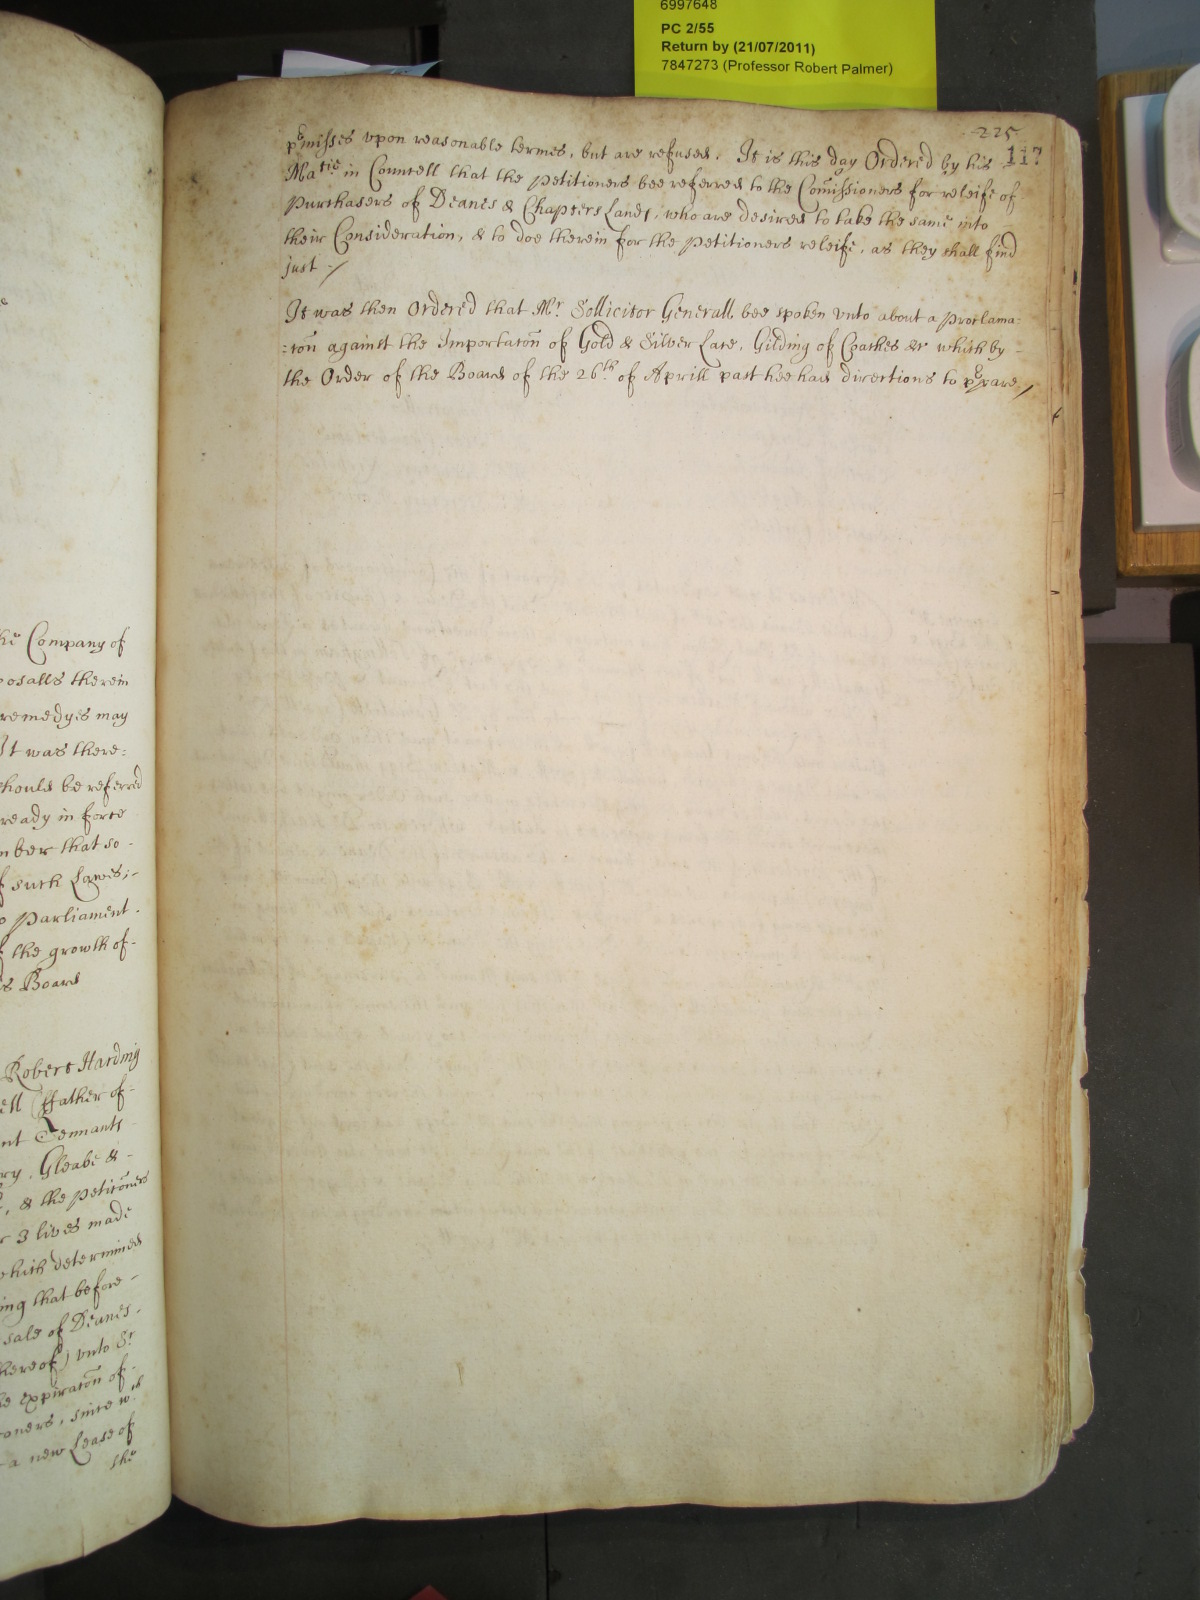 6997648
PC 2/55
Return by (21/07/2011)
7847273 (Professor Robert Palmer)
225
117
pͤmisses vpon reasonable termes, but are refused. It is this day Ordered by his
Maᵗⁱᵉ in Councell that the Petitioners bee referred to the Com̄issioners for releife of
Purchasers of Deanes & Chapters Lands, who are desired to take the same into
their Consideration, & to doe therein for the Petitioners releife, as they shall find
just ·/
It was then Ordered that Mʳ Sollicitor Generall bee spoken vnto about a Proclama-
:con̄ against the Importacon̄ of Gold & Silver Lace, Gilding of Coaches &c which by -
the Order of the Board of the 26ᵗʰ of Aprill past hee had directions to pͤpare /
he Company of
osalls therein
remedyes may
It was there:
hould be referred
ready in force
mber that so -
f such Lawes;-
Parliament.
the growth of-
s Board
Robert Harding
ell (ffather of-
nt Tennants
ry, Gleabe & -
, & the Petiton̄ers
r 3 lives made
which determined
ing that before -
sale of Deanes -
hereof) vnto Sʳ
e expiracon̄ of -
oners, since wᶜʰ
a new Lease of
the